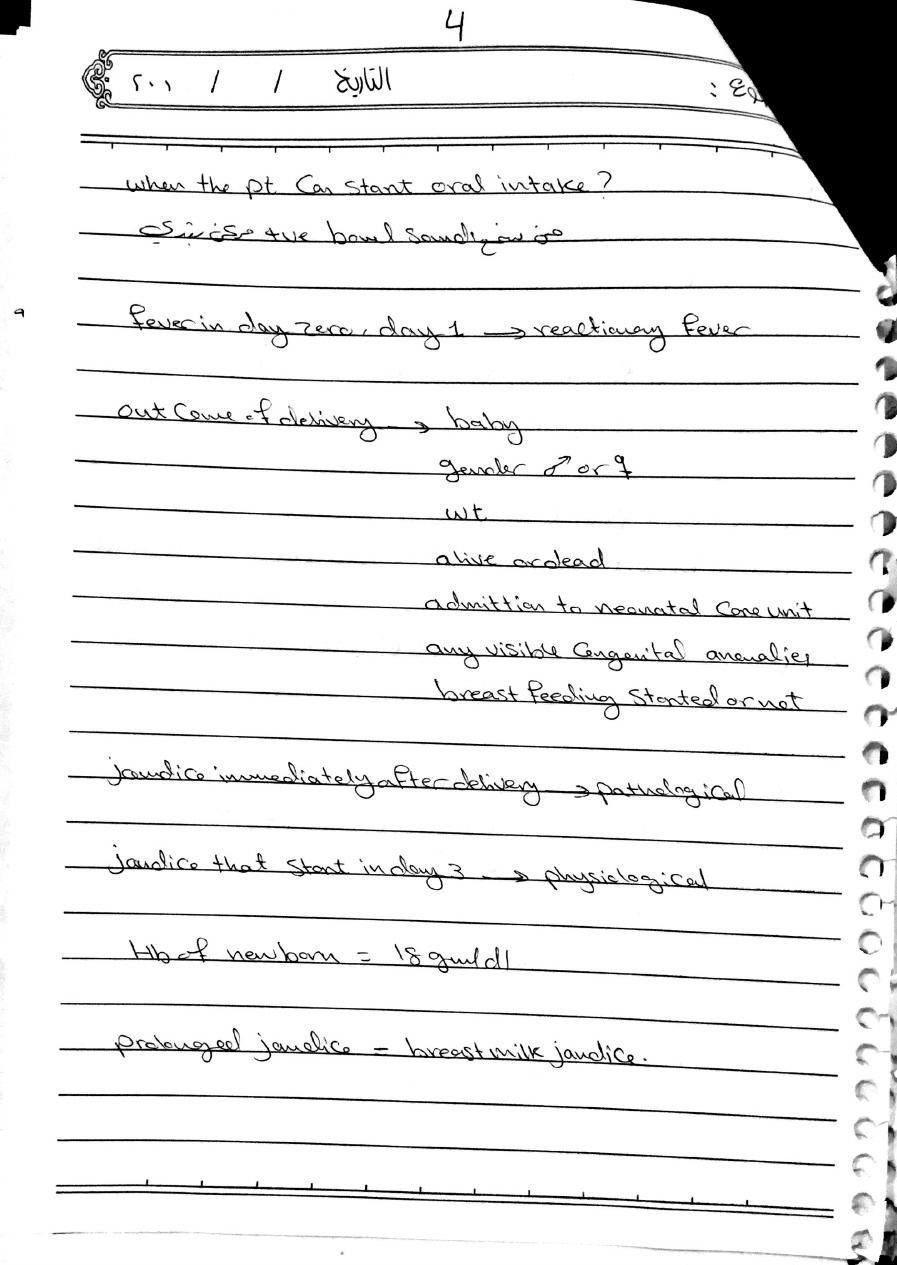 4
التاريخ / / ٢٠١
when the pt. Can start oral intake?
من نسمع bowel sound +ve ممكن تبتدي
fever in day zero, day 1 → reactionary fever
out Come of delivery → baby
gender ♂ or ♀
wt
alive or dead
admittion to neonatal Care unit
any visible Congenital anomalies
breast feeding Started or not
jaundice immediately after delivery → pathological
jaundice that Start in day 3 → physiological
Hb of newborn = 18 gm/dl
prolonged jaundice = breast milk jaudice.